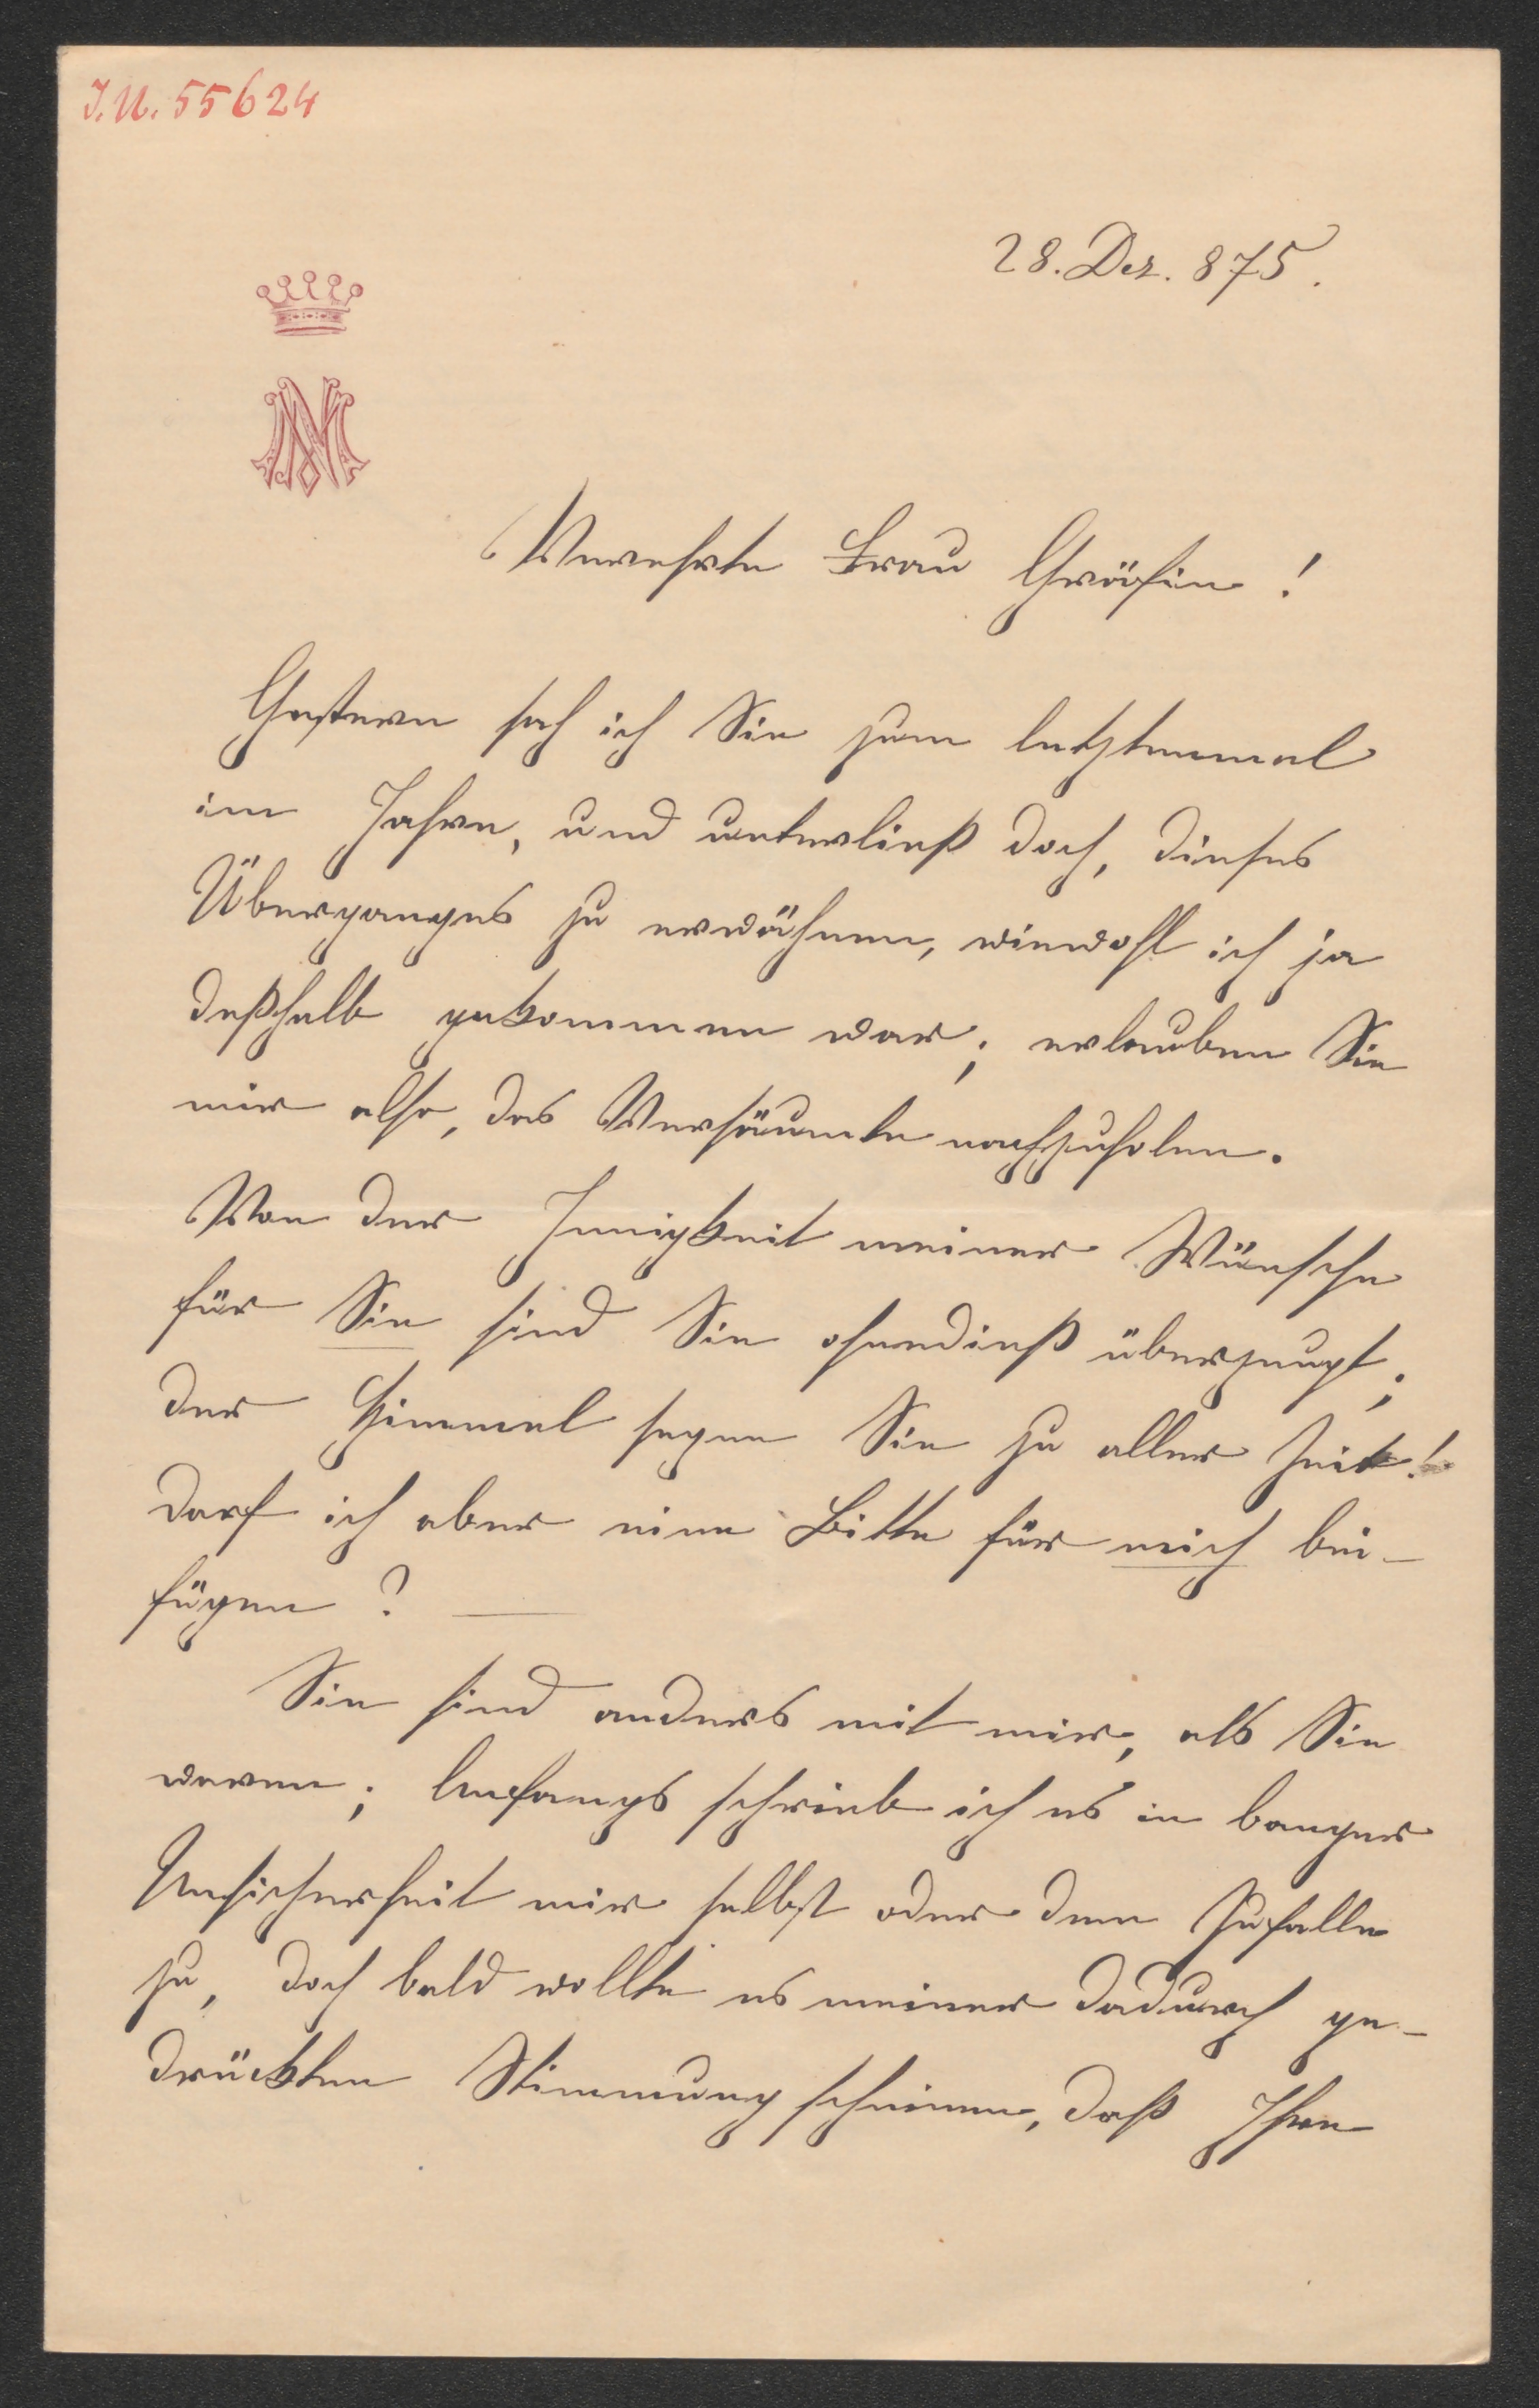 I.N. 55624
28. Dez. 875.
Verehrte Frau Gräfin!
Gestern sah ich Sie zum letztenmal
im Jahre, und unterließ doch, dieses
Überganges zu erwähnen, wiewohl ich ja
deßhalb gekommen war; erlauben Sie
mir also, das Versäumte nachzuholen.
Von der Innigkeit meiner Wünsche
für Sie sind Sie ohnedieß überzeugt;
der Himmel segne Sie zu aller Zeit!
Darf ich aber eine Bitte für mich bei-
fügen? —
Sie sind anders mit mir, als Sie
waren; Anfangs schrieb ich es in banger
Unsicherheit mir selbst oder dem Zufalle
zu, doch bald wollte es meiner dadurch ge-
drückten Stimmung scheinen, daß Ihre